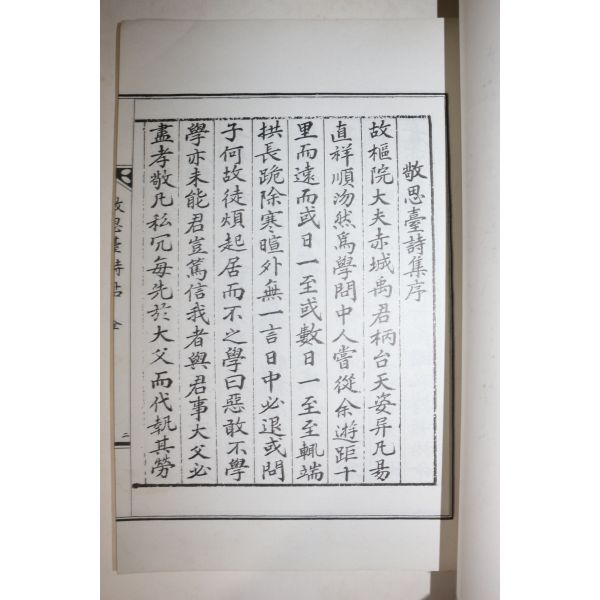 敬思臺詩集序
故樞院大夫赤城禹君柄台天姿昇凡昜
直祥順沕然爲學問中人嘗從余遊距十
里而遠而或日一至或數日一至至輒端
拱長跪除寒暄外無一言日中必退或問
子何故徒煩起居而不之學曰惡敢不學
學亦未能君豈篤信我者與君事大父必
盡孝敬凡私冗每先於大父而代執其勞
敬思臺詩帖 全
二